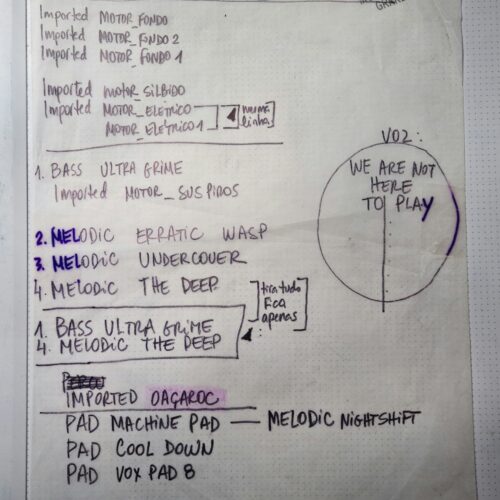 Imported MOTOR_FONDO
Imported MOTOR_FONDO 2
Imported MOTOR_FONDO 1
Imported MOTOR_SILBIDO
Imported MOTOR_ELETRICO
MOTOR_ELETRICO 1
numa
linha
1. BASS ULTRA GRIME
Imported MOTOR_SUSPIROS
2. MELODIC ERRATIC WASP
3. MELODIC UNDERCOVER
4. MELODIC THE DEEP
tira tudo
fica
apenas
:
1. BASS ULTRA GRIME
4. MELODIC THE DEEP
IMPORTED OAGAROC
PAD MACHINE PAD — MELODIC NIGHTSHIFT
PAD COOL DOWN
PAD VOX PAD 8
VOZ:
WE ARE NOT
HERE
TO PLAY